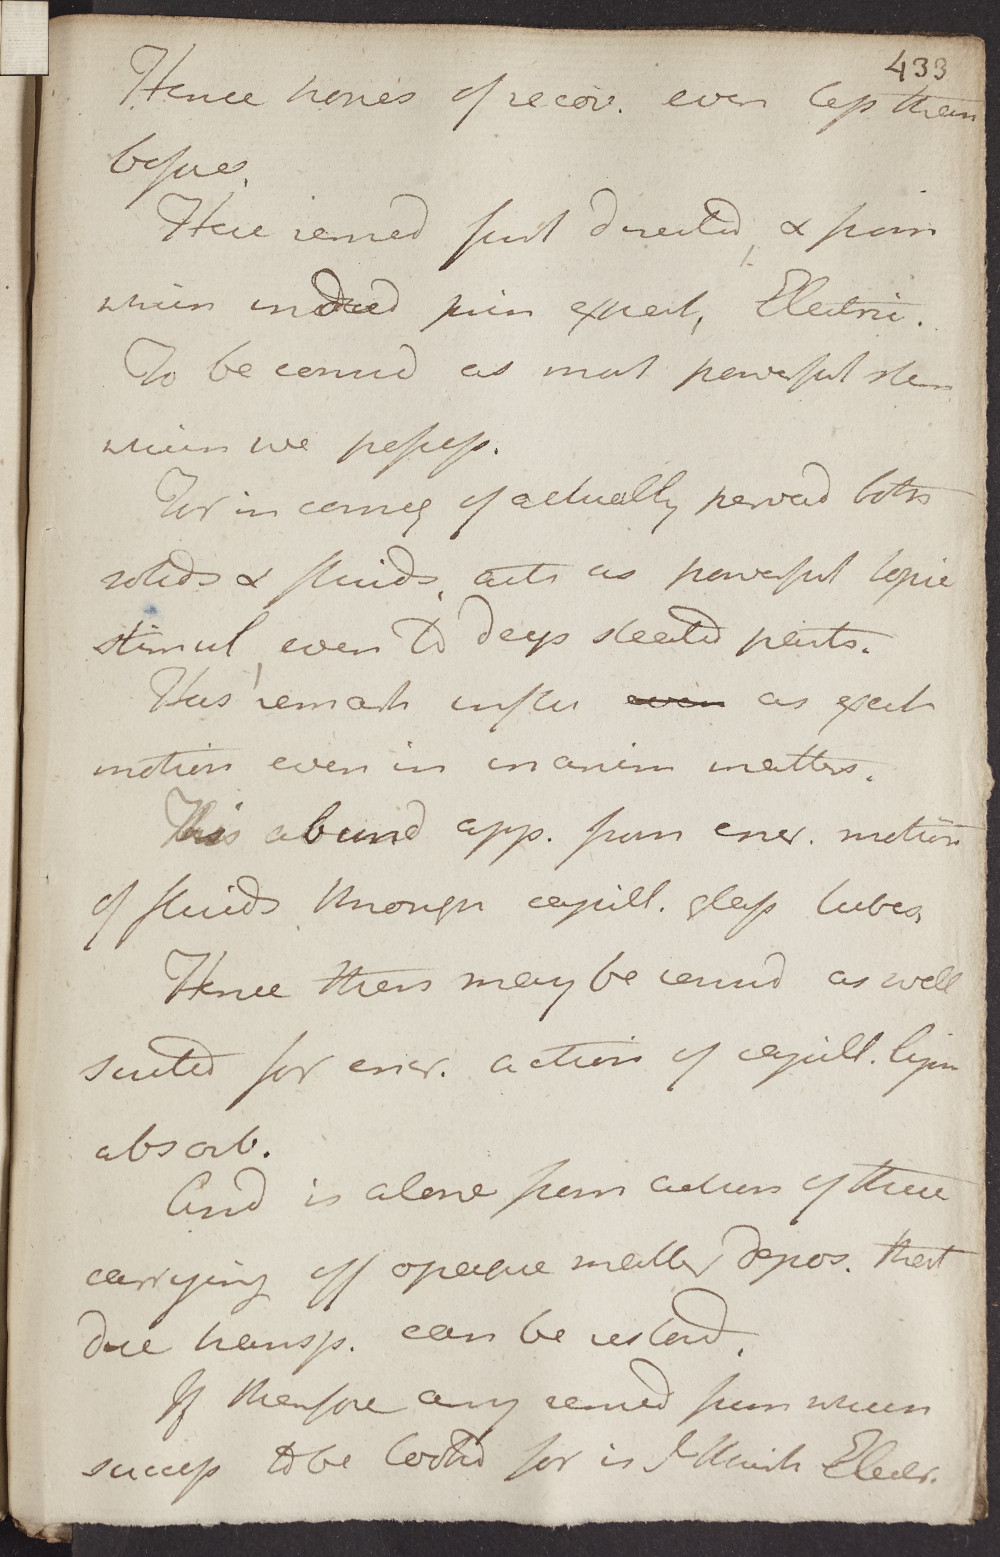 433
Hence hopes of recov. even less than
before.
Here remed first directed, & from
which indeed prin expect, Electric.
To be consid as most powerful stim
which we possess.
For in conseq of actually pervad both
solids & fluids, acts as powerful topic
stimul, even to deep seated parts.
Has remark influ even as excit
motion even in inanim matters.
This abund app. from encr. motion
of fluids through capill. glass tubes,
Hence then may be consid as well
suited for encr. action of capill. lym
absorb.
And is alone from action of these
carrying off opaque matter depos. that
due transp. can be restord.
If therefore any remed from which
success to be lookd for is I think Elect.